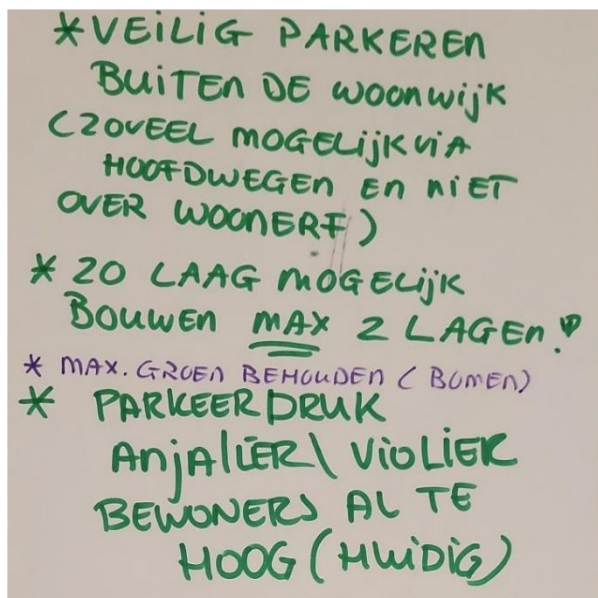 * VEILIG PARKEREN
BUITEN DE WOONWIJK
(ZOVEEL MOGELIJK VIA
HOOFDWEGEN EN NIET
OVER WOONERF)
* ZO LAAG MOGELIJK
BOUWEN MAX 2 LAGEN!
* MAX. GROEN BEHOUDEN (BOMEN)
* PARKEERDRUK
ANJALIER \ VIOLIER
BEWONERS AL TE
HOOG (HUIDIG)